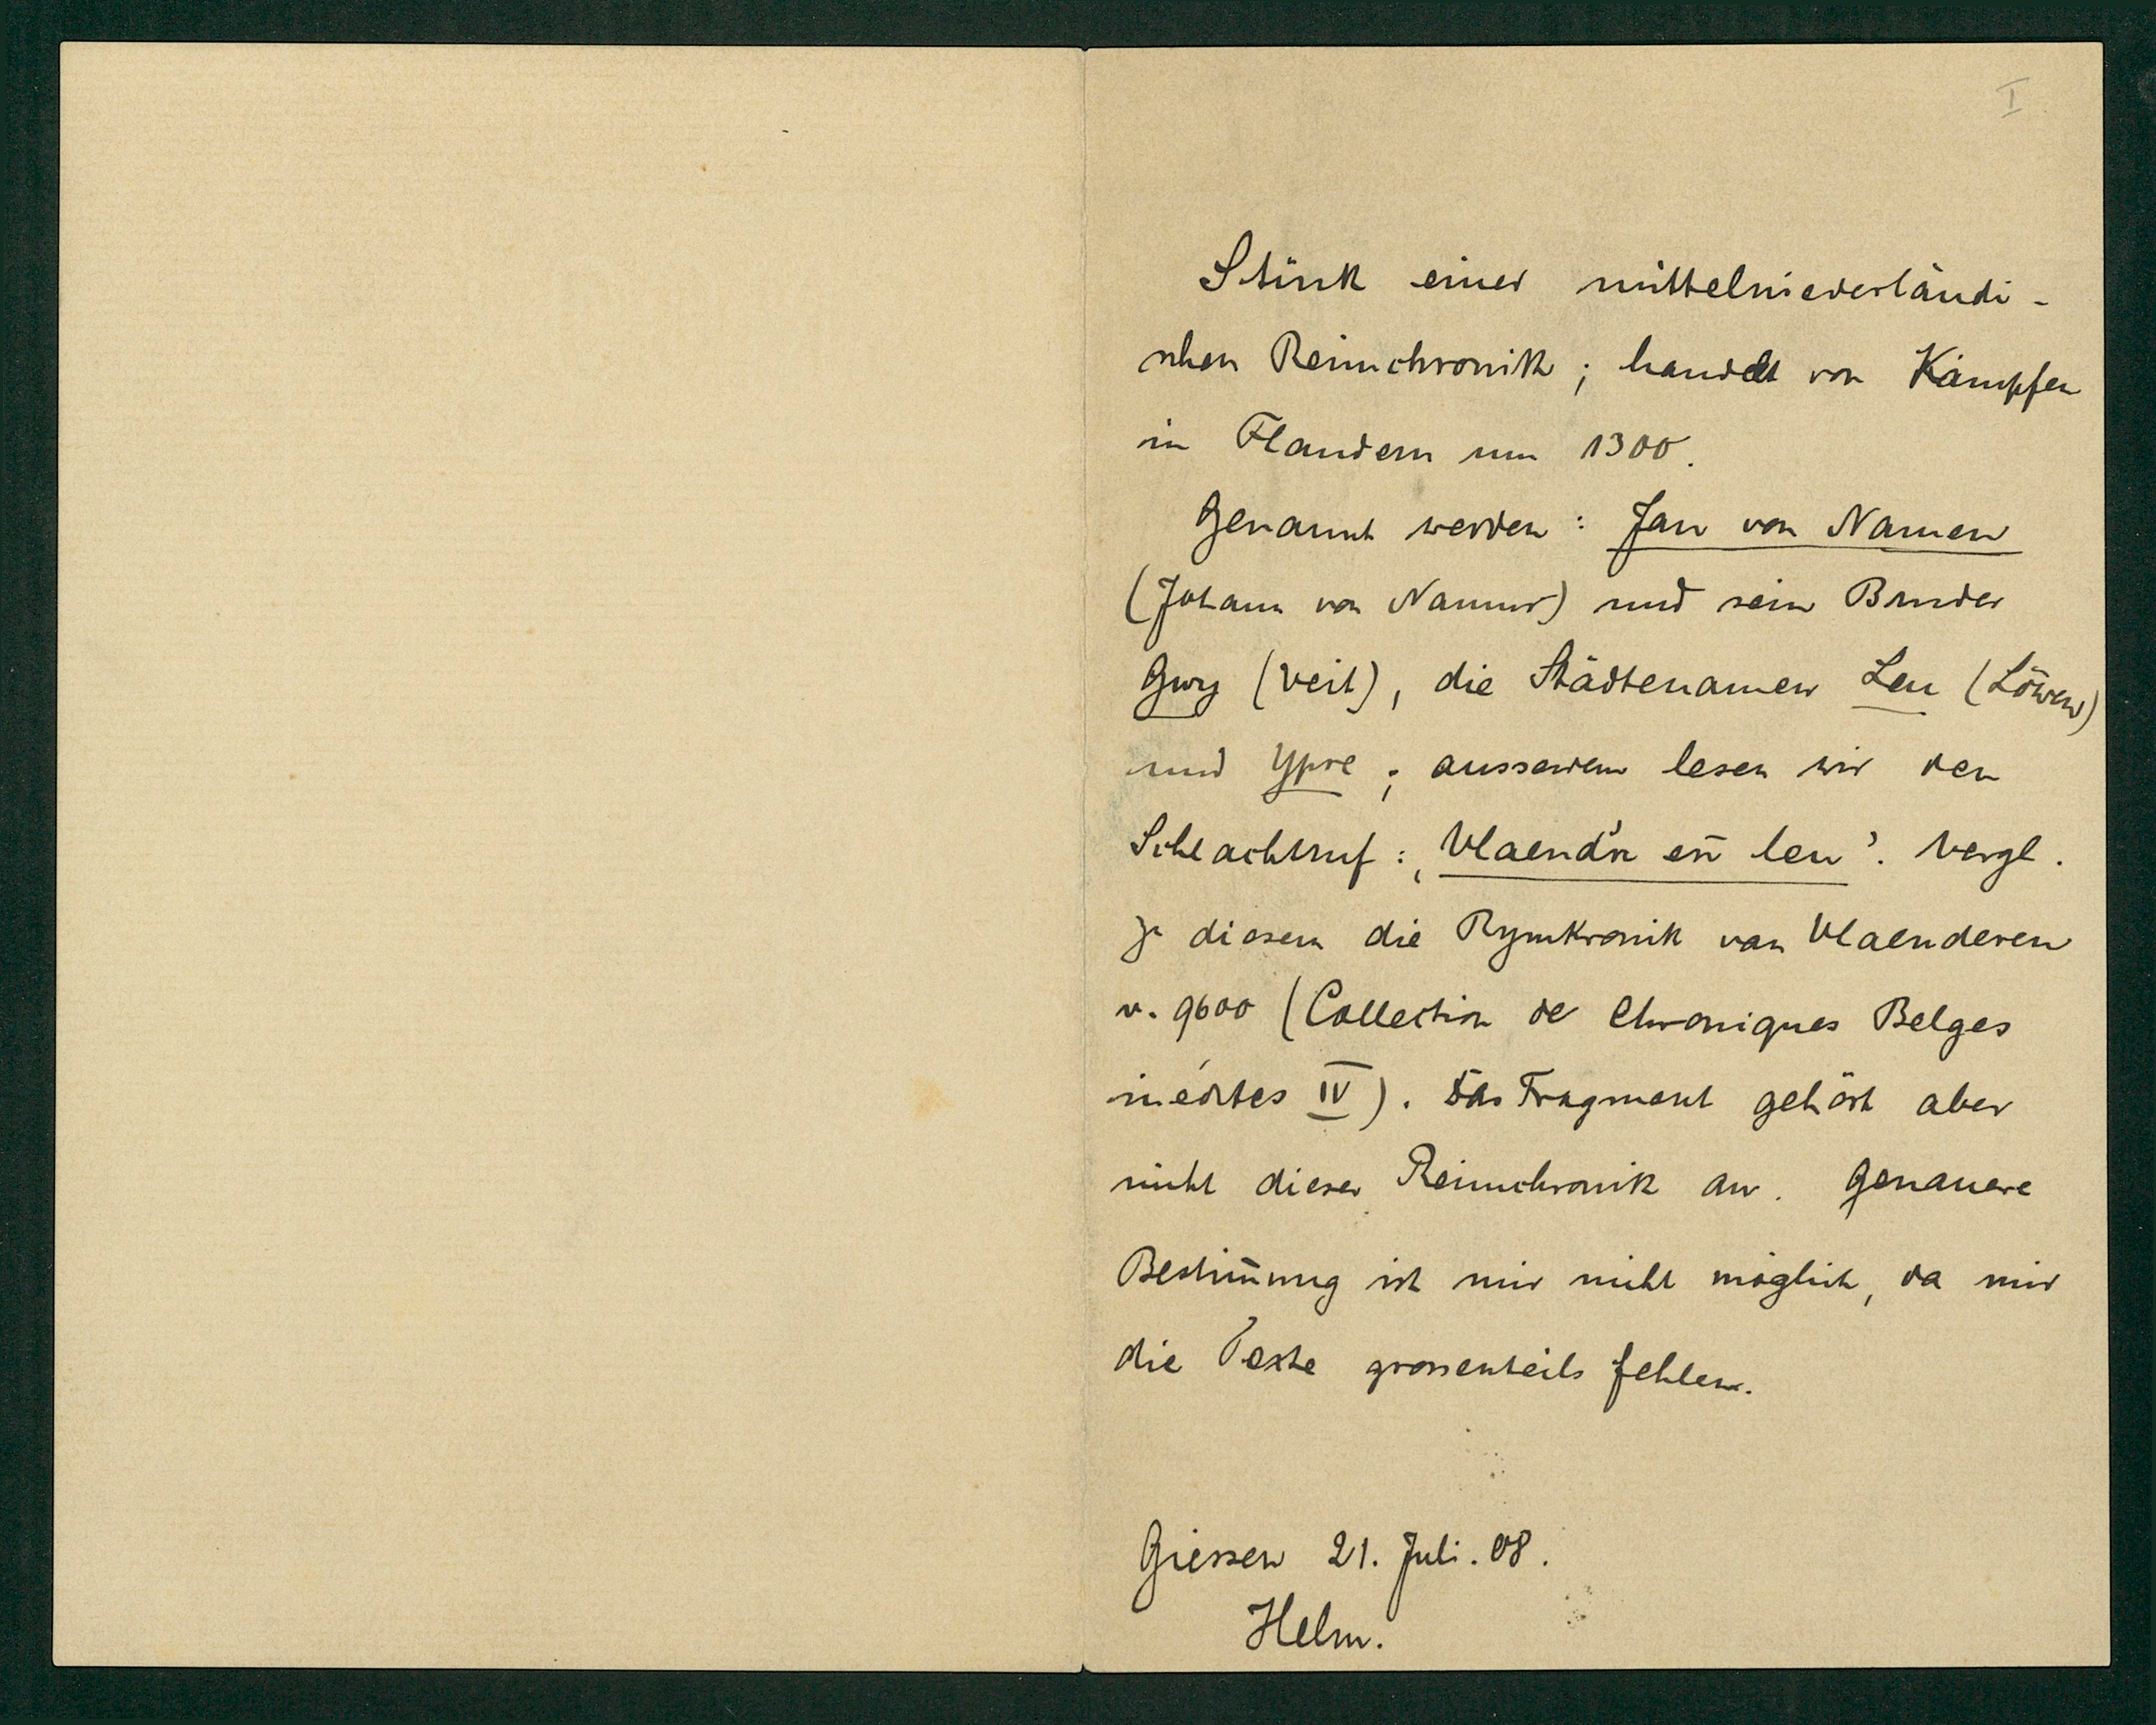 I
Stück einer mittelniederländi-
schen Reimchronik; handelt von Kämpfen
in Flandern um 1300.
Genannt werden: Jan von Namen
(Johann von Namur) und sein Bruder
Gwy (Veit), die Städtenamen Leu (Löwen)
und Ypre; ausserdem lesen wir den
Schlachtruf: ‚Vlaend'n en̄ leu‘. Vergl.
zu diesem die Rymkronik van Vlaenderen
v. 9600 (Collection de Chroniques Belges
inédites IV). Das Fragment gehört aber
nicht dieser Reimchronik an. Genauere
Bestim̄ung ist mir nicht möglich, da mir
die Texte grossenteils fehlen.
Giessen 21. Juli. 08.
Helm.